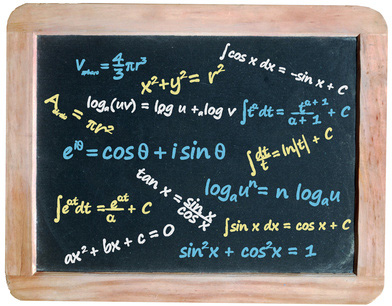 V_sphere = 4/3 πr³
∫cos x dx = -sin x + C
x² + y² = r²
A_circle = πr²
logₙ(uv) = log u +ₙlog v
∫tᵃdt = tᵃ⁺¹/a+1 + C
e^iθ = cos θ + i sin θ
∫dt/t = ln|t| + C
tan x = sin x/cos x
logₐuⁿ = n logₐu
∫eᵃᵗdt = eᵃᵗ/a + C
∫sin x dx = cos x + C
ax² + bx + c = 0
sin²x + cos²x = 1